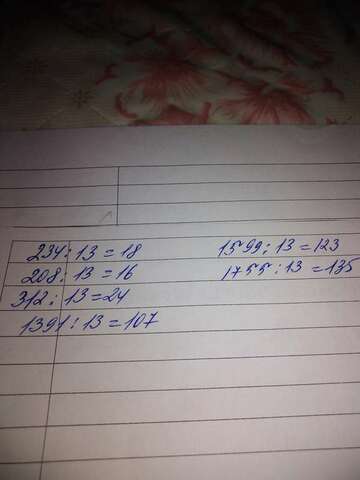 234 : 13 = 18
208 : 13 = 16
312 : 13 = 24
1391 : 13 = 107
1599 : 13 = 123
1755 : 13 = 135